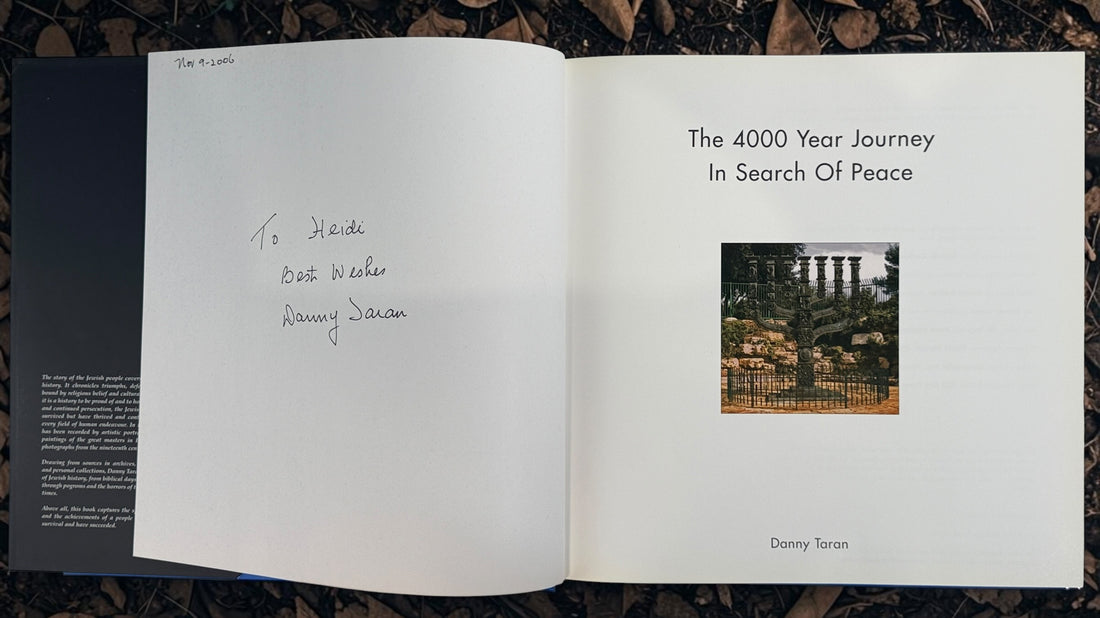 Nov 9-2006
To Heidi
Best Wishes
Danny Taran
The story of the Jewish people cover
history. It chronicles triumphs, def
bound by religious belief and cultur
it is a history to be proud of and to h
and continued persecution, the Jewi
survived but have thrived and con
every field of human endeavour. In
has been recorded by artistic portr
paintings of the great masters in
photographs from the nineteenth cen
Drawing from sources in archives,
and personal collections, Danny Tar
of Jewish history, from biblical days
through pogroms and the horrors of t
times.
Above all, this book captures the s
and the achievements of a people
survival and have succeeded.
The 4000 Year Journey
In Search Of Peace
Danny Taran